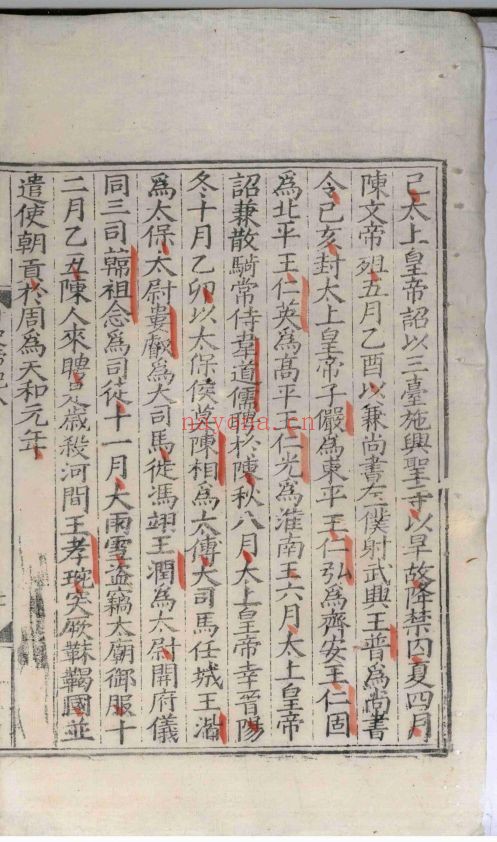 己太上皇帝詔以三臺施興聖寺以旱故降禁囚夏四月
陳文帝殂五月乙酉以兼尚書左僕射武興王普爲尚書
令己亥封太上皇帝子儼爲東平王仁弘爲齊安王仁固
爲北平王仁英爲高平王仁光爲淮南王六月太上皇帝
詔兼散騎常侍韋道儒聘於陳秋八月太上皇帝幸晉陽
冬十月乙卯以太保侯莫陳相爲太傅大司馬任城王湝
爲太保太尉婁叡爲大司馬徙馮翊王潤爲太尉開府儀
同三司韓祖念爲司徒十一月大雨雪盗竊太廟御服十
二月乙丑陳人來聘是歲殺河間王孝琬突厥靺鞨國並
遣使朝貢於周爲天和元年
nayona.cn